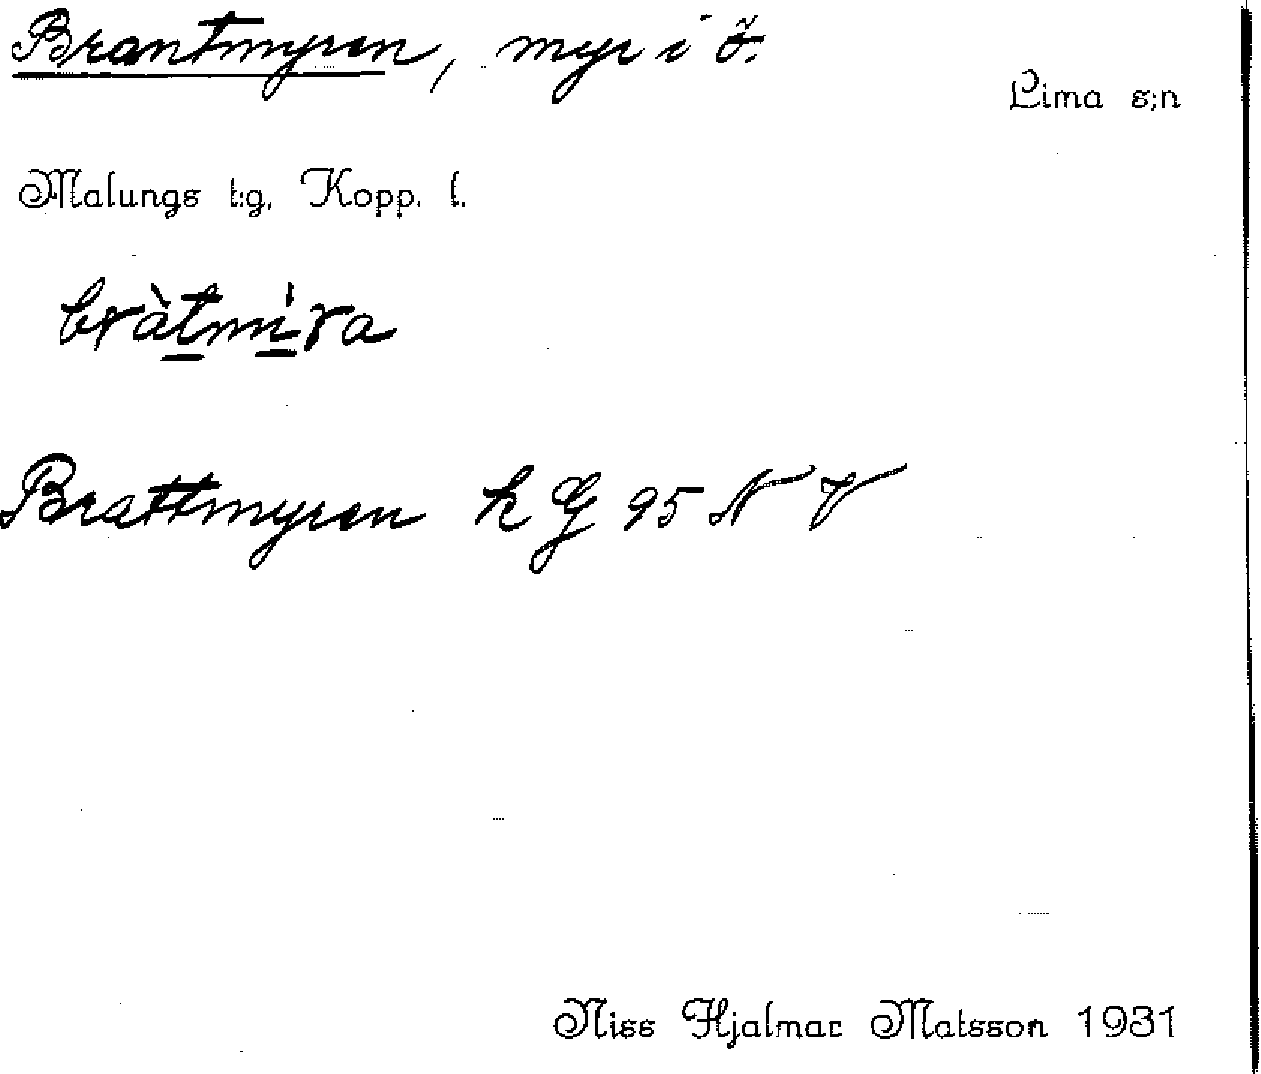 Brantmyren, myr i ö.
Lima s:n
Malungs t:g. Kopp. l.
bràtmìra
Brattmyren k G 95 N V
Niss Hjalmar Matsson 1931